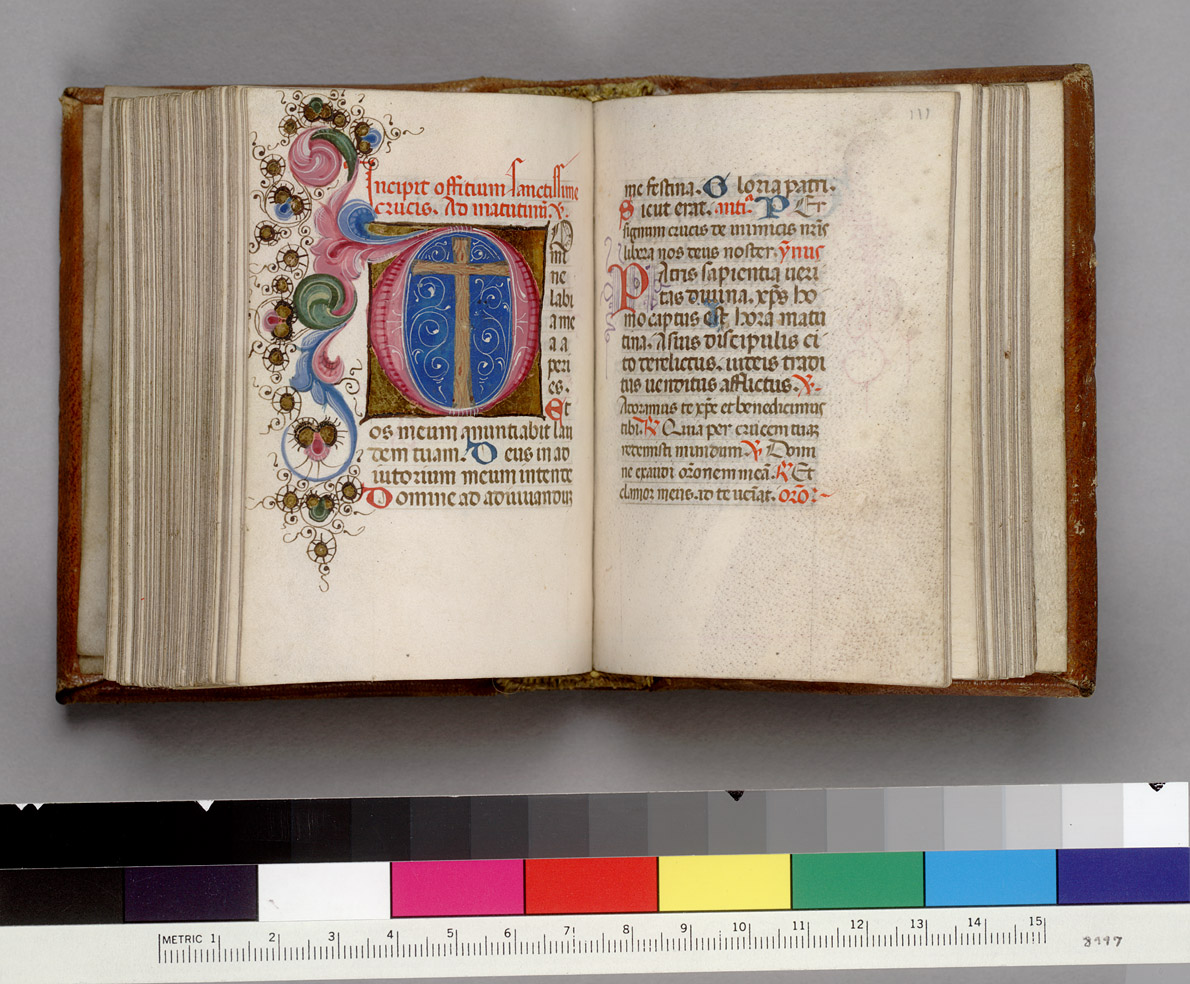 Incipit offitium sanctissime
crucis. Ad matutinũ ℣.
D
mi
ne
labi
a me
a a
peri
es.
Et
os meum anuntiabit lau
dem tuam. Deus in ad
iutorium meum intende
Domine ad adiuuandum
111
me festina. Gloria patri.
Sicut erat. antiª Per
signum crucis de inimicis nr̃is
libera nos deus noster. ỹnus
Patris sapientia ueri
tas diuina. xp̃s ho
mo captus est hora matu
tina. A suis discipulis ci
to derelictus. iudeis tradi
tus uenditus afflictus. ℣.
Adoramus te xp̃e et benedicimus
tibi. ℟ Quia per crucem tuaʒ
redemisti mundum ℣ Domi
ne exaudi orõnem meã. ℟ Et
clamor meus. ad te ueniat. orõ:
METRIC 1 2 3 4 5 6 7 8 9 10 11 12 13 14 15